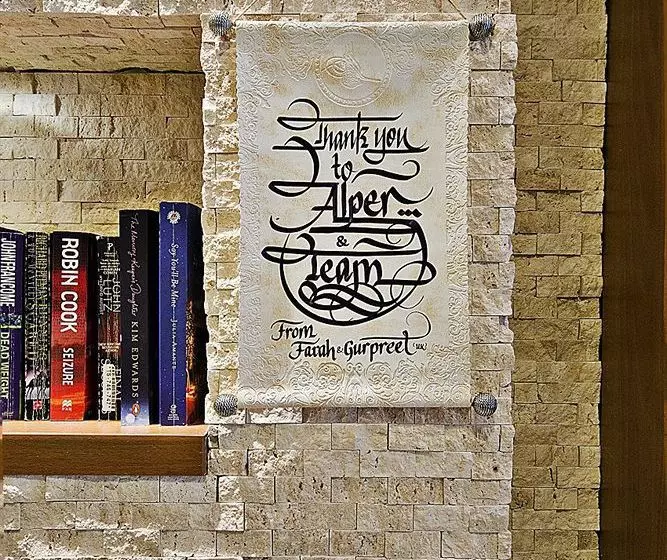 Thank you
to
Alper...
&
Team
From
Farah & Gurpreet (UK)
JOHN FRANCOME
DEAD WEIGHT
ROBIN COOK
SEIZURE
PAN
JOHN
LUTZ
FINAL
The Memory Keeper's Daughter
KIM EDWARDS
Say You'll Be Mine
JULIA AMANTE